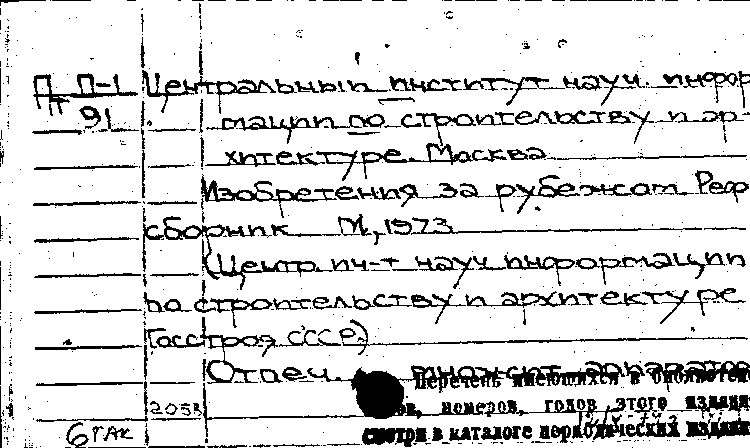 П П-1 Центральный институт науч. инфор
Пт 91 мации по строительству и ар-
хитектуре. Москва
Изобретения за рубежом. Реф
сборник М, 1973
(Центр. ин-т науч информации
по строительству и архитектуре
Госстроя СССР)
Отпеч.
Перечень имеющихся в библиотеке
номеров, годов этого издания
205в смотри в каталоге периодических издани
6 ГАК